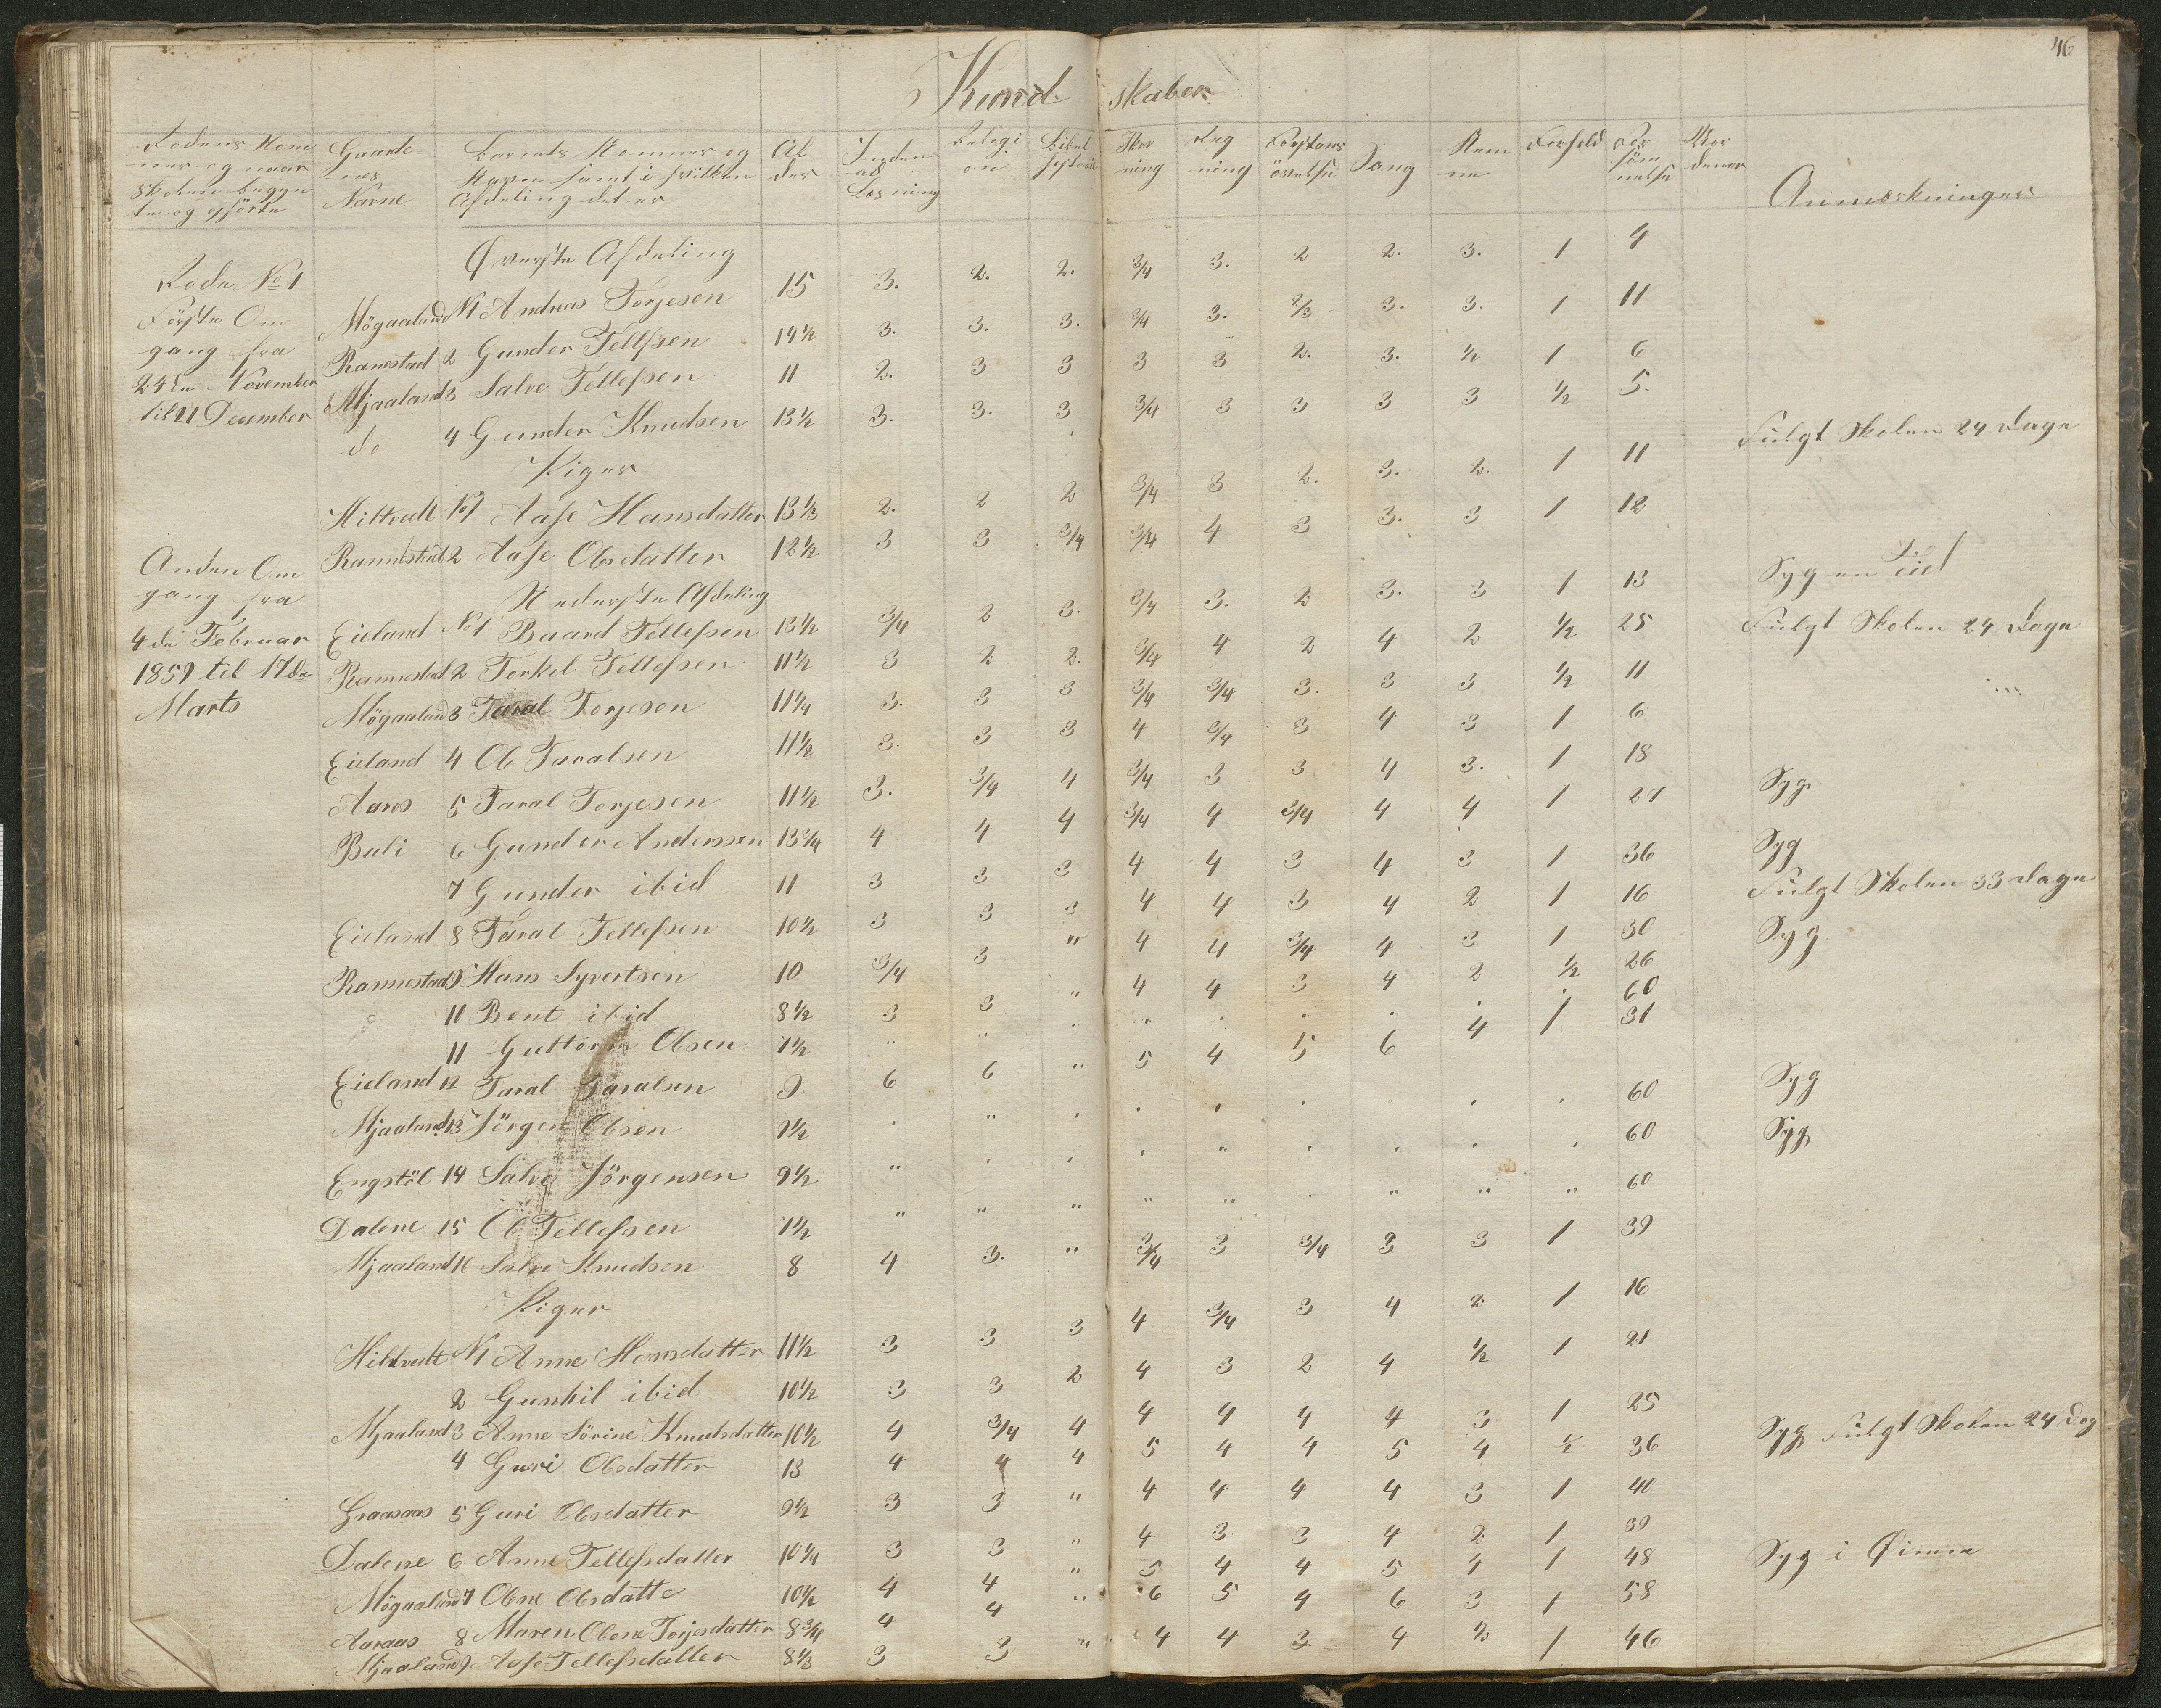 46
Kund skaber
Rodens Nom mer og naar Skolen begyn te og ophörte | Gaarde nes Navne | Barnets Nommer og Navn samt i hvilken Afdeling det er | Al der | Inden ad Læsning | Religi on | Bibel historie | Skriv ning | Reg ning | Forstans övelse | Sang | Nem me | Forhold | For söm melse | Anmærkninger
Øverste Afdeling
Rode No 1
Förste Om
gang fra
24de November
til 21 December
Mögaaland N1 Andreas Torjesen 15 3. 2. 2. 3/4 3. 2 2. 3. 1 4
Rannestad 2 Gunder Tellefsen 14½ 3. 3. 3. 3/4 3. 2/3 3. 3. 1 11
Mjaaland 3 Salve Tellefsen 11 2. 3 3 3 3 2. 3. ½ 1 6
do 4 Gunder Knudsen 13½ 3. 3. 3 3/4 3 3 3 3 ½ 5. Fulgt Skolen 24 Dage
Piger
Hiltvedt No1 Aase Hansdatter 13⅓ 2. 2 2 3/4 3 2. 3. 2. 1 11
Rannestad 2 Aase Olsdatter 12½ 3 3 3/4 3/4 4 3 3. 3 1 12
Anden Om
gang fra
4de Februar
1859 til 17de
Marts
Nederste Afdeling
Eieland No1 Baard Tellefsen 13½ 3/4 2 3. 3/4 3. 2 3. 3 1 13 Syg en Tid
Rannestad 2 Terkel Tellefsen 11½ 3 2 2. 3/4 4 2 4 2 ½ 25 Fulgt Skolen 24 Dage
Mögaaland 3 Taral Torjesen 11¼ 3. 3 3 3/4 3/4 3. 3 3 ½ 11
Eieland 4 Ole Taralsen 11½ 3. 3 3 4 3/4 3 4 3 1 6
Aaros 5 Taral Torjesen 11½ 3. 3/4 4 3/4 3 3 4 3. 1 18 Syg
Buli 6 Gunder Anderssen 13¾ 4 4 4 3/4 4 3/4 4 4 1 27 Syg
7 Gunder ibid 11 3 3 3 4 4 3 4 3 1 36 Fulgt Skolen 33 Dage
Eieland 8 Taral Tellefsen 10½ 3 3 3 4 4 3 4 2 1 16
Rannestad 9 Hans Syvertsen 10 3/4 3 " 4 4 3/4 4 3 1 30 Syg
11 Bent ibid 8½ 3 3 " 4 4 3 4 2 ½ 26
11 Guttorm Olsen 7½ " " . " . . . . . 60
Eieland 12 Taral Taralsen 9 6 6 " 5 4 5 6 4 1 31
Mjaaland 13 Jörgen Olsen 7½ . " . . . . . . 60 Syg
Engstöl 14 Salve Jörgensen 9½ " . . . " . . . . 60 Syg
Dalene 15 Ole Tellefsen 7½ " " " " " . " " " 60
Mjaaland 16 Salve Knudsen 8 4 3. " 3/4 3 3/4 3 3 1 39
Piger
Hiltvedt N1 Anne Hansdatter 11½ 3 3 3 4 3/4 3 4 2 1 16
2 Gunhil ibid 10½ 3 3 2 4 3 2 4 ½ 1 21
Mjaaland 3 Anne Sörine Knudsdatter 10½ 4 3/4 4 4 4 4 4 3 1 25
4 Guri Olsdatter 13 4 4 4 5 4 4 5 4 ½ 36 Syg Fulgt Skolen 24 Dag
Graasaas 5 Guri Olsdatter 9½ 3 3 " 4 4 4 4 3 1 40
Dalene 6 Anne Tellefsdatter 10¼ 3 3 " 4 3 3 4 2 1 39
Mögaaland 7 Olene Olsdatte 10½ 4 4 " 5 4 4 5 4 1 48 Syg i Öinene
Aaraas 8 Maren Olene Torjesdatter 8¾ 4 4 " 6 5 4 6 3 1 58
Mjaaland 9 Aase Tellefsdatter 8⅓ 3 3 " 4 4 3 4 ⅔ 1 46